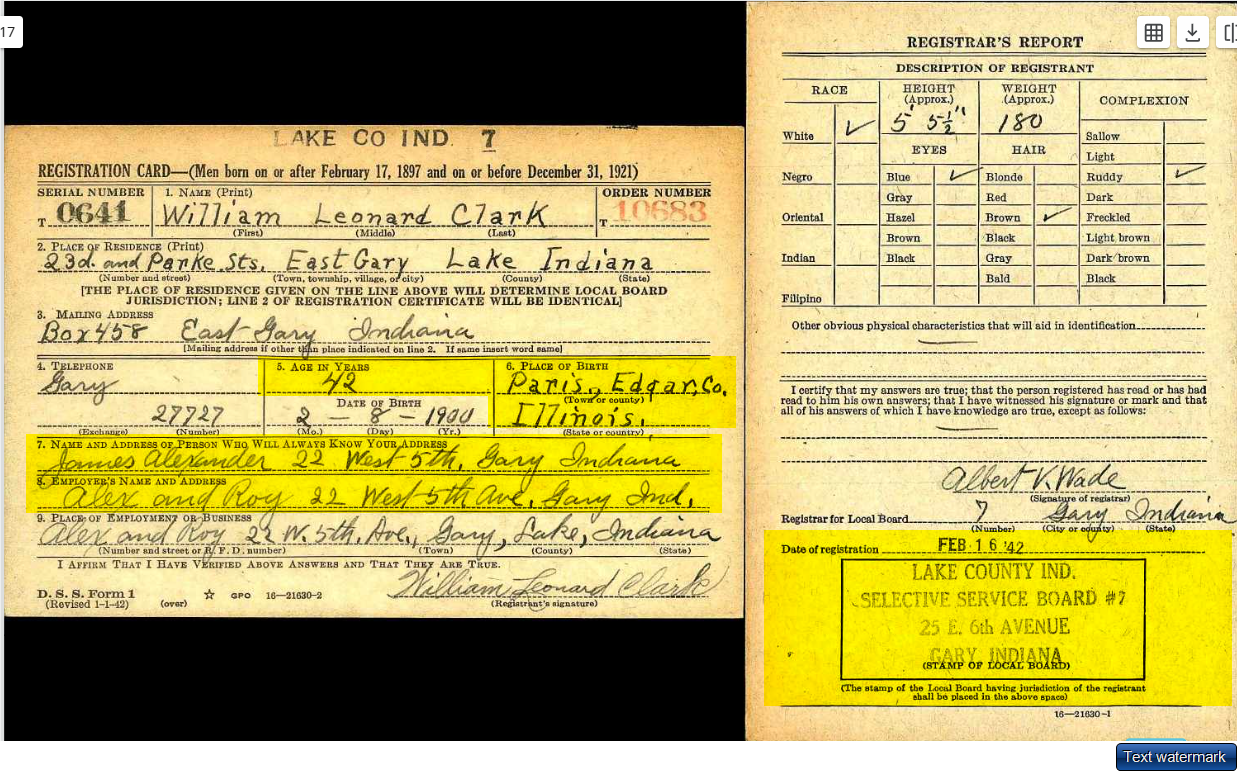 17
LAKE CO IND. 7
REGISTRATION CARD—(Men born on or after February 17, 1897 and on or before December 31, 1921)
SERIAL NUMBER
1. NAME (Print)
ORDER NUMBER
T 0641
William Leonard Clark
T 10683
(First) (Middle) (Last)
2. PLACE OF RESIDENCE (Print)
23d. and Parke Sts. East Gary Lake Indiana
(Number and street) (Town, township, village, or city) (County) (State)
[THE PLACE OF RESIDENCE GIVEN ON THE LINE ABOVE WILL DETERMINE LOCAL BOARD
JURISDICTION; LINE 2 OF REGISTRATION CERTIFICATE WILL BE IDENTICAL]
3. MAILING ADDRESS
Box 458 East Gary Indiana
[Mailing address if other than place indicated on line 2. If same insert word same]
4. TELEPHONE
Gary
27727
(Exchange) (Number)
5. AGE IN YEARS
42
DATE OF BIRTH
2 - 8 - 1900
(Mo.) (Day) (Yr.)
6. PLACE OF BIRTH
Paris., Edgar, Co.
(Town or county)
Illinois.
(State or country)
7. NAME AND ADDRESS OF PERSON WHO WILL ALWAYS KNOW YOUR ADDRESS
James Alexander 22 West 5th, Gary Indiana
8. EMPLOYER'S NAME AND ADDRESS
Alex and Roy 22 West 5th Ave, Gary Ind.
9. PLACE OF EMPLOYMENT OR BUSINESS
Alex and Roy 22 W. 5th. Ave., Gary, Lake, Indiana
(Number and street or R. F. D. number) (Town) (County) (State)
I AFFIRM THAT I HAVE VERIFIED ABOVE ANSWERS AND THAT THEY ARE TRUE.
William Leonard Clark
D. S. S. Form 1
(Revised 1-1-42) (over) ☆ GPO 16—21630-2 (Registrant's signature)
REGISTRAR'S REPORT
DESCRIPTION OF REGISTRANT
RACE
HEIGHT
(Approx.)
WEIGHT
(Approx.)
COMPLEXION
White ✓
5' 5½"
180
Sallow
EYES
HAIR
Light
Negro
Blue ✓
Blonde
Ruddy ✓
Gray
Red
Dark
Oriental
Hazel
Brown ✓
Freckled
Brown
Black
Light brown
Indian
Black
Gray
Dark brown
Bald
Black
Filipino
Other obvious physical characteristics that will aid in identification
I certify that my answers are true; that the person registered has read or has had
read to him his own answers; that I have witnessed his signature or mark and that
all of his answers of which I have knowledge are true, except as follows:
Albert V. Wade
(Signature of registrar)
Registrar for Local Board 7 Gary Indiana
(Number) (City or county) (State)
Date of registration FEB 16 '42
LAKE COUNTY IND.
SELECTIVE SERVICE BOARD #7
25 E. 6th AVENUE
GARY INDIANA
(STAMP OF LOCAL BOARD)
(The stamp of the Local Board having jurisdiction of the registrant
shall be placed in the above space)
16—21630-1
Text watermark